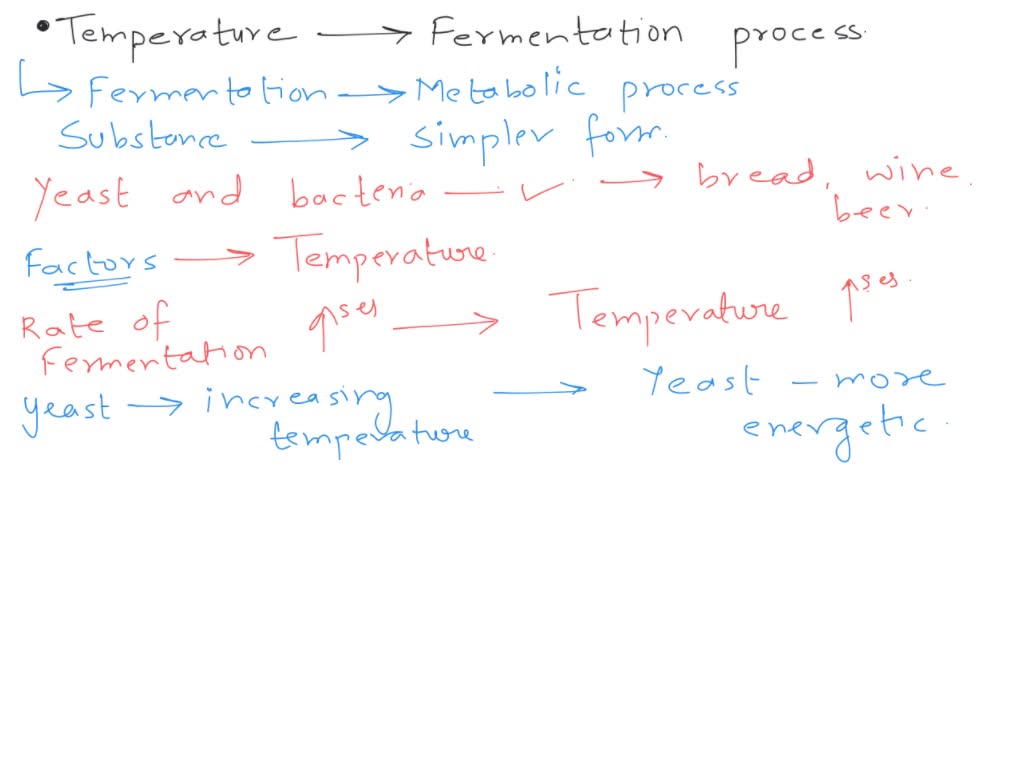 • Temperature → Fermentation process.
↳ Fermentation → Metabolic process
Substance → Simpler form.
Yeast and bacteria — ✓ → bread, wine.
beer.
Factors → Temperature.
Rate of Fermentation ↑ses → Temperature ↑ses.
yeast → increasing temperature → Yeast - more energetic.